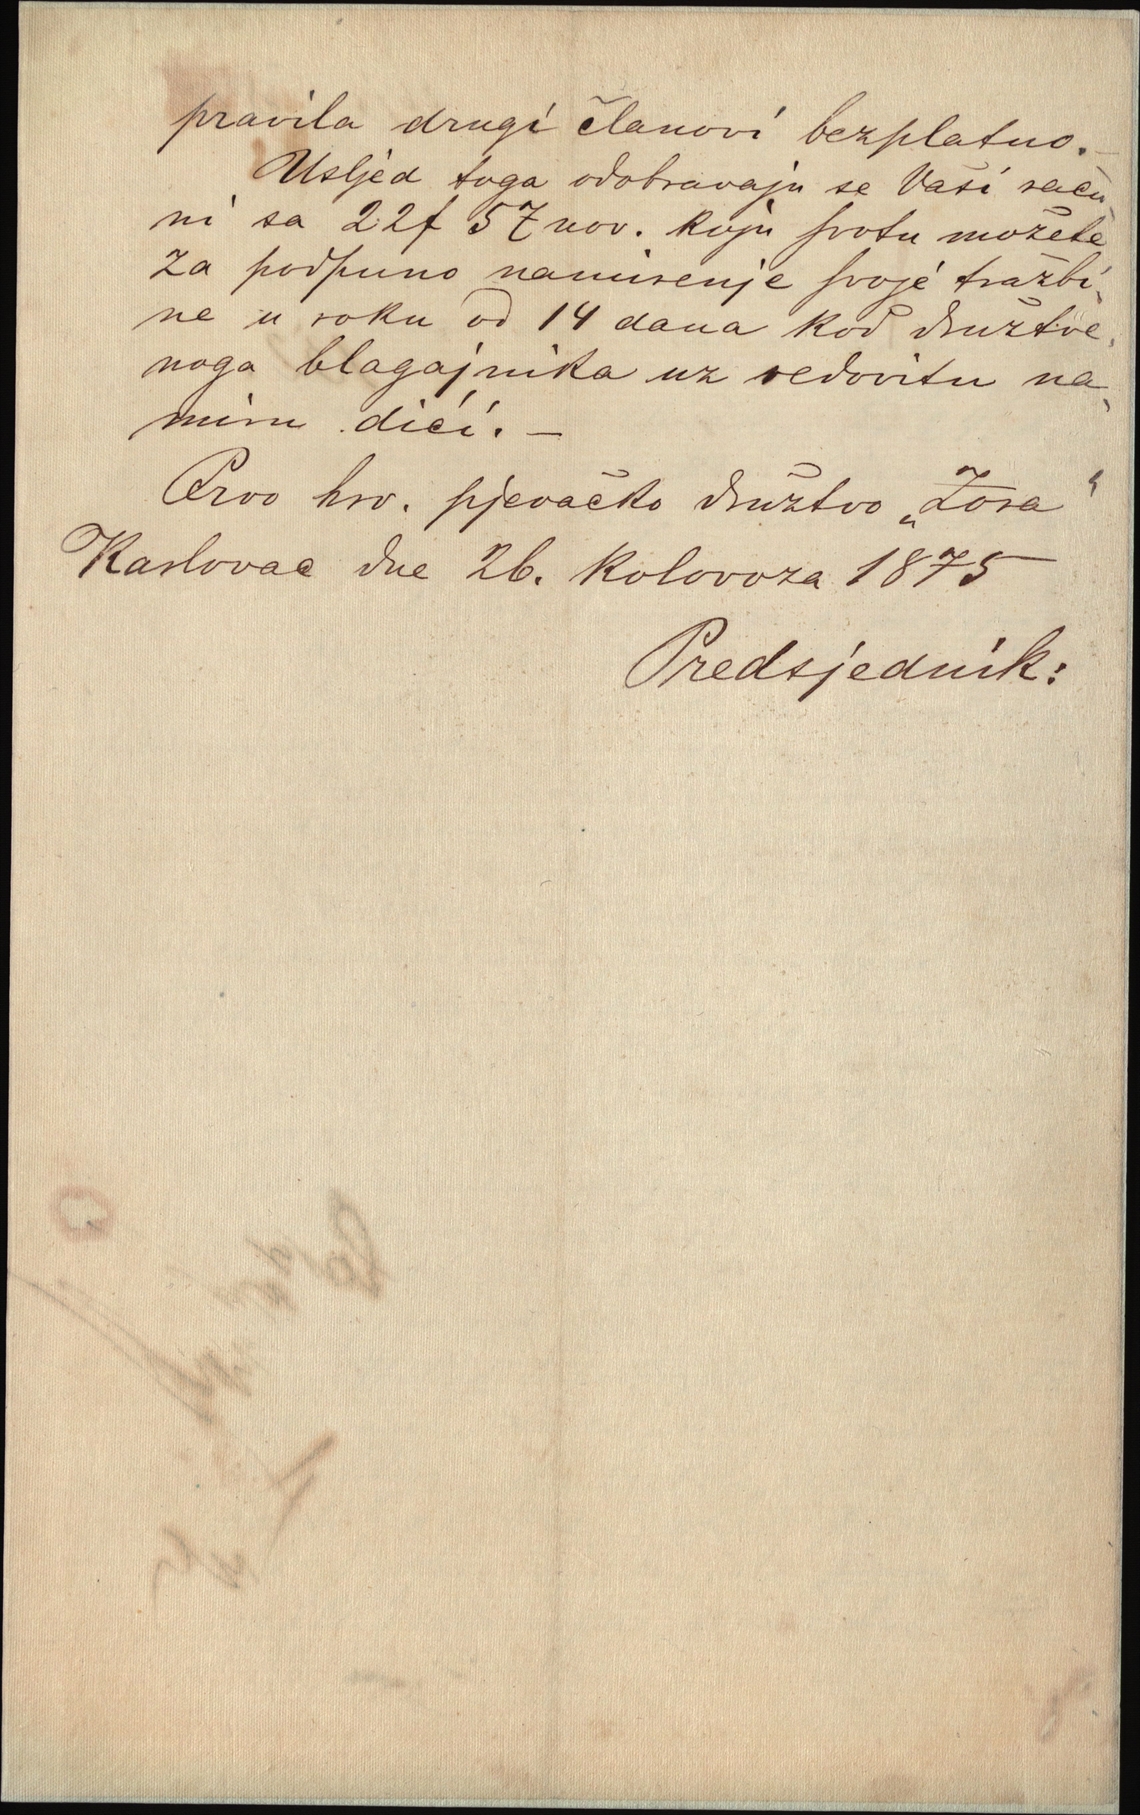 pravila drugi članovi bezplatno. —
Usljed toga odobravaju se Vaši raču„
ni sa 22f 57 nov. koju svotu možete
za podpuno namirenje svoje tražbi„
ne u roku od 14 dana kod družtve„
noga blagajnika uz redovitu na„
miru dići. —
Prvo hrv. pjevačko družtvo „Zora“
Karlovac dne 26. kolovoza 1875
Predsjednik: